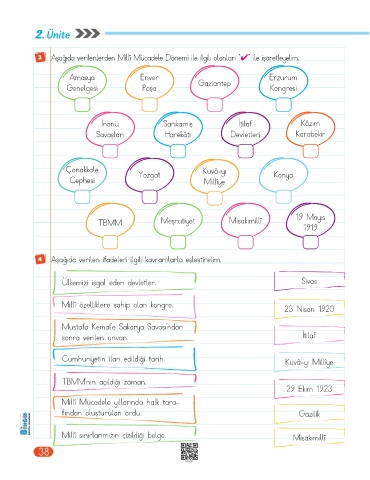 2. Ünite
3 Aşağıda verilenlerden Millî Mücadele Dönemi ile ilgili olanları "✓" ile işaretleyelim.
Amasya
Genelgesi
Enver
Paşa
Gaziantep
Erzurum
Kongresi
İnönü
Savaşları
Sarıkamış
Harekâtı
İtilaf
Devletleri
Kâzım
Karabekir
Çanakkale
Cephesi
Yozgat
Kuvâ-yı
Millîye
Konya
TBMM
Meşrutiyet
Misakımillî
19 Mayıs
1919
4 Aşağıda verilen ifadeleri ilgili kavramlarla eşleştirelim.
Ülkemizi işgal eden devletler.
Sivas
Millî özelliklere sahip olan kongre.
23 Nisan 1920
Mustafa Kemal'e Sakarya Savaşından
sonra verilen unvan.
İtilaf
Cumhuriyetin ilan edildiği tarih.
Kuvâ-yı Millîye
TBMM'nin açıldığı zaman.
29 Ekim 1923
Millî Mücadele yıllarında halk tara-
fından oluşturulan ordu.
Gazilik
Millî sınırlarımızın çizildiği belge.
Misakımillî
BİNGO
38